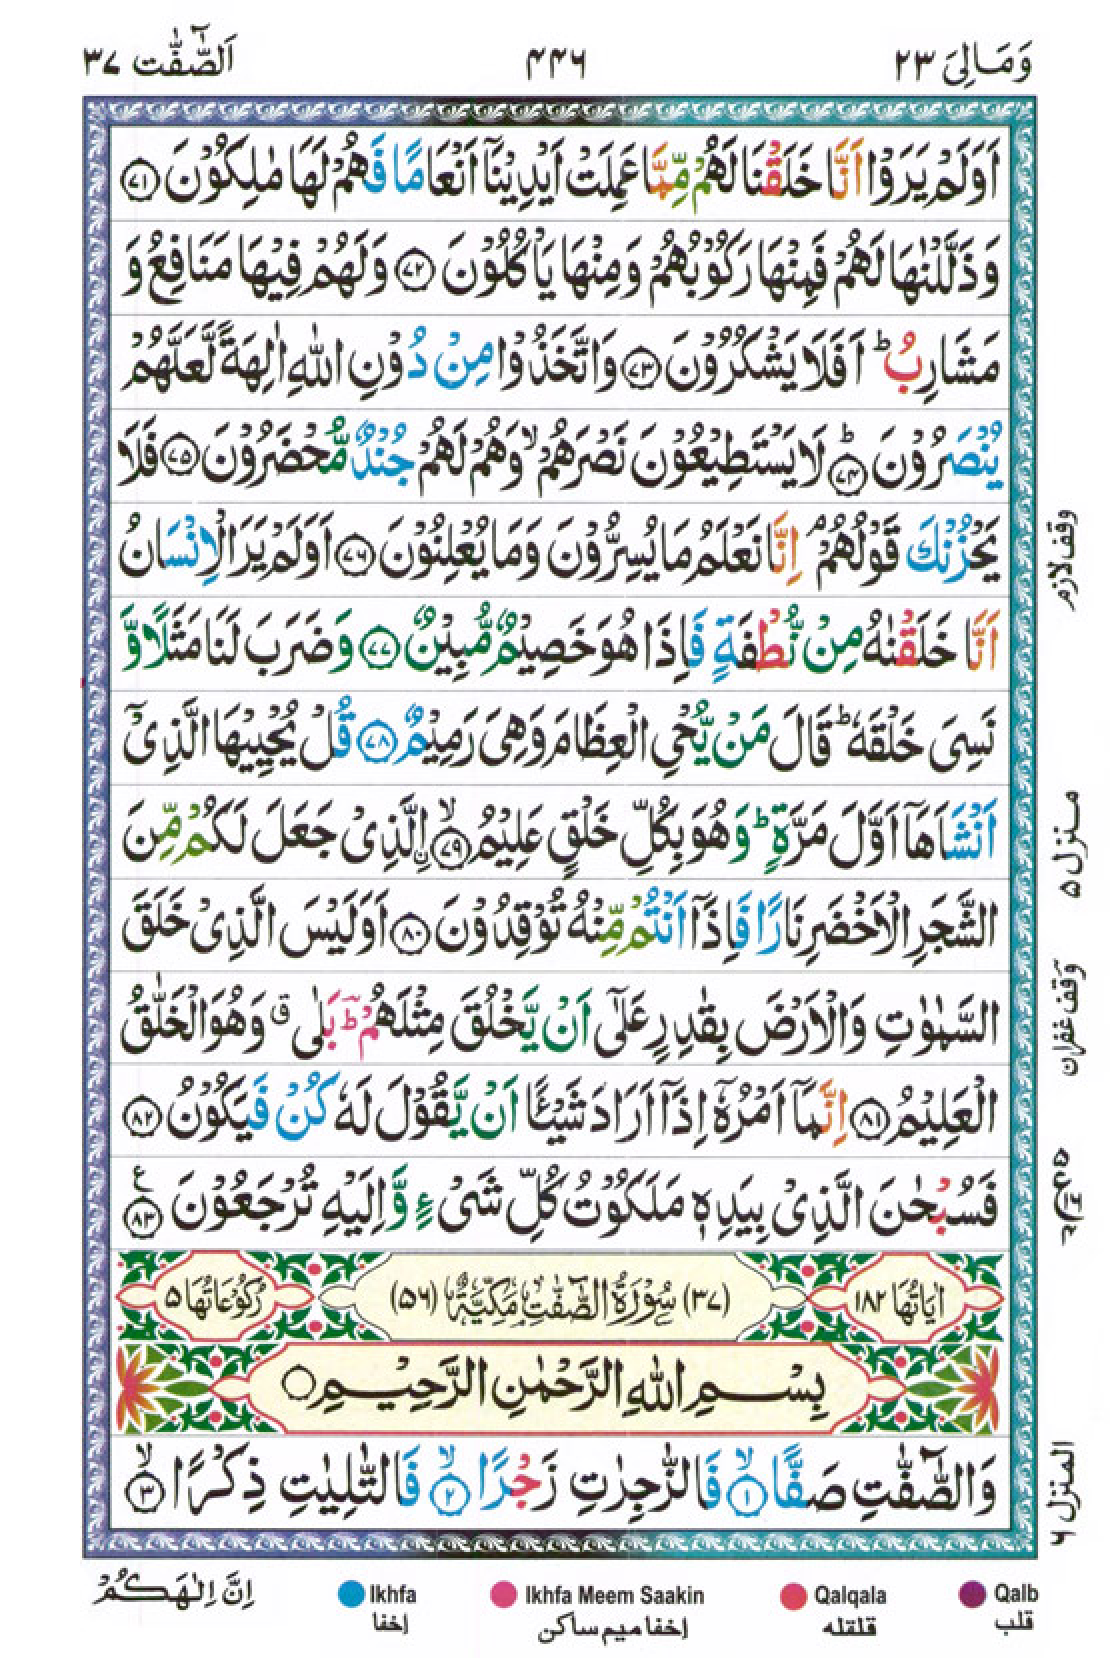 وَمَالِیَ ۲۳
۴۴۶
اَلصّٰٓفّٰت ۳۷
اَوَلَمْ یَرَوْا اَنَّا خَلَقْنَا لَهُمْ مِّمَّا عَمِلَتْ اَیْدِیْنَاۤ اَنْعَامًا فَهُمْ لَهَا مٰلِكُوْنَ ﴿۷۱﴾
وَذَلَّلْنٰهَا لَهُمْ فَمِنْهَا رَكُوْبُهُمْ وَمِنْهَا یَاْكُلُوْنَ ﴿۷۲﴾ وَلَهُمْ فِیْهَا مَنَافِعُ وَ
مَشَارِبُ ؕ اَفَلَا یَشْكُرُوْنَ ﴿۷۳﴾ وَاتَّخَذُوْا مِنْ دُوْنِ اللّٰهِ اٰلِهَةً لَّعَلَّهُمْ
یُنْصَرُوْنَ ؕ﴿۷۴﴾ لَا یَسْتَطِیْعُوْنَ نَصْرَهُمْ ۙ وَهُمْ لَهُمْ جُنْدٌ مُّحْضَرُوْنَ ﴿۷۵﴾ فَلَا
یَحْزُنْكَ قَوْلُهُمْ ۘ اِنَّا نَعْلَمُ مَا یُسِرُّوْنَ وَمَا یُعْلِنُوْنَ ﴿۷۶﴾ اَوَلَمْ یَرَ الْاِنْسَانُ
اَنَّا خَلَقْنٰهُ مِنْ نُّطْفَةٍ فَاِذَا هُوَ خَصِیْمٌ مُّبِیْنٌ ﴿۷۷﴾ وَضَرَبَ لَنَا مَثَلًا وَّ
نَسِیَ خَلْقَهٗ ؕ قَالَ مَنْ یُّحْیِ الْعِظَامَ وَهِیَ رَمِیْمٌ ﴿۷۸﴾ قُلْ یُحْیِیْهَا الَّذِیْۤ
اَنْشَاَهَاۤ اَوَّلَ مَرَّةٍ ؕ وَهُوَ بِكُلِّ خَلْقٍ عَلِیْمُ ۙ﴿۷۹﴾ اِ۟لَّذِیْ جَعَلَ لَكُمْ مِّنَ
الشَّجَرِ الْاَخْضَرِ نَارًا فَاِذَاۤ اَنْتُمْ مِّنْهُ تُوْقِدُوْنَ ﴿۸۰﴾ اَوَلَیْسَ الَّذِیْ خَلَقَ
السَّمٰوٰتِ وَالْاَرْضَ بِقٰدِرٍ عَلٰۤی اَنْ یَّخْلُقَ مِثْلَهُمْ ؕ بَلٰی ۗ وَهُوَ الْخَلّٰقُ
الْعَلِیْمُ ﴿۸۱﴾ اِنَّمَاۤ اَمْرُهٗۤ اِذَاۤ اَرَادَ شَیْـًٔا اَنْ یَّقُوْلَ لَهٗ كُنْ فَیَكُوْنُ ﴿۸۲﴾
فَسُبْحٰنَ الَّذِیْ بِیَدِهٖ مَلَكُوْتُ كُلِّ شَیْءٍ وَّاِلَیْهِ تُرْجَعُوْنَ ﴿۸۳﴾
اٰیَاتُهَا ۱۸۲
(۳۷) سُوْرَةُ الصّٰٓفّٰتِ مَكِّیَّةٌ (۵۶)
رُكُوْعَاتُهَا ۵
بِسْمِ اللّٰهِ الرَّحْمٰنِ الرَّحِیْمِ ○
وَالصّٰٓفّٰتِ صَفًّا ۙ﴿۱﴾ فَالزّٰجِرٰتِ زَجْرًا ۙ﴿۲﴾ فَالتّٰلِیٰتِ ذِكْرًا ۙ﴿۳﴾
وقف لازم
منزل ۵
وقف غفران
المنزل ۶
اِنَّ اِلٰهَكُمْ
Ikhfa
إخفا
Ikhfa Meem Saakin
إخفا میم ساكن
Qalqala
قلقله
Qalb
قلب